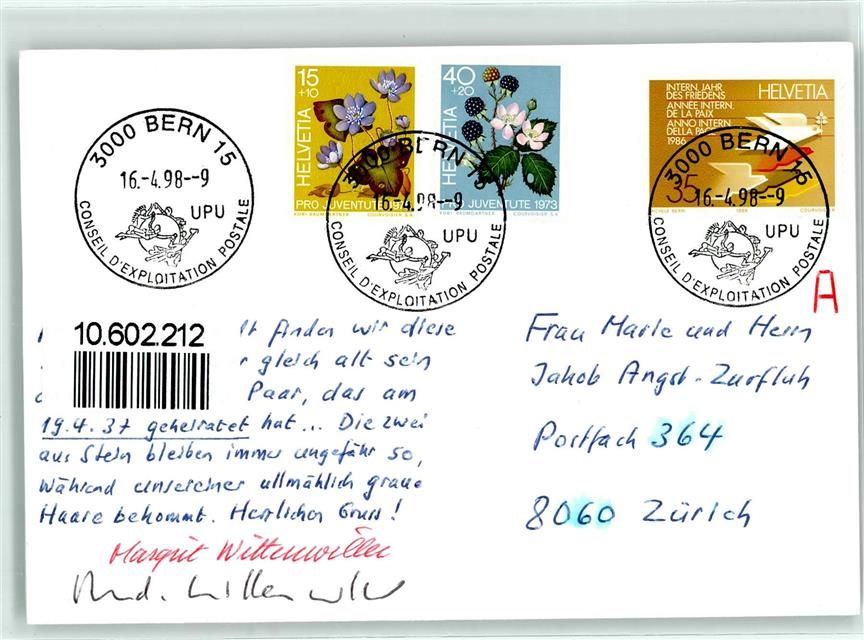 15
+10
HELVETIA
PRO JUVENTUTE
COURVOISIER S.A.
40
+20
HELVETIA
PRO JUVENTUTE 1973
KOBI BAUMGARTNER
COURVOISIER S.A.
INTERN. JAHR
DES FRIEDENS
ANNÉE INTERN.
DE LA PAIX
ANNO INTERN.
DELLA PACE
1986
HELVETIA
35
COURVOISIER
3000 BERN 15
16.-4.98--9
UPU
CONSEIL D'EXPLOITATION POSTALE
3000 BERN 15
16.-4.98--9
UPU
CONSEIL D'EXPLOITATION POSTALE
3000 BERN 15
16.-4.98--9
UPU
CONSEIL D'EXPLOITATION POSTALE
A
10.602.212
finden wir diese
gleich alt sein
Paar, das am
19.4.37 geheiratet hat... Die zwei
aus Stein bleiben immer ungefähr so,
während unsereiner allmählich graue
Haare bekommt. Herzlichen Gruss!
Margrit Wittenwiller
Frau Marie und Herrn
Jakob Angst-Zurfluh
Postfach 364
8060 Zürich